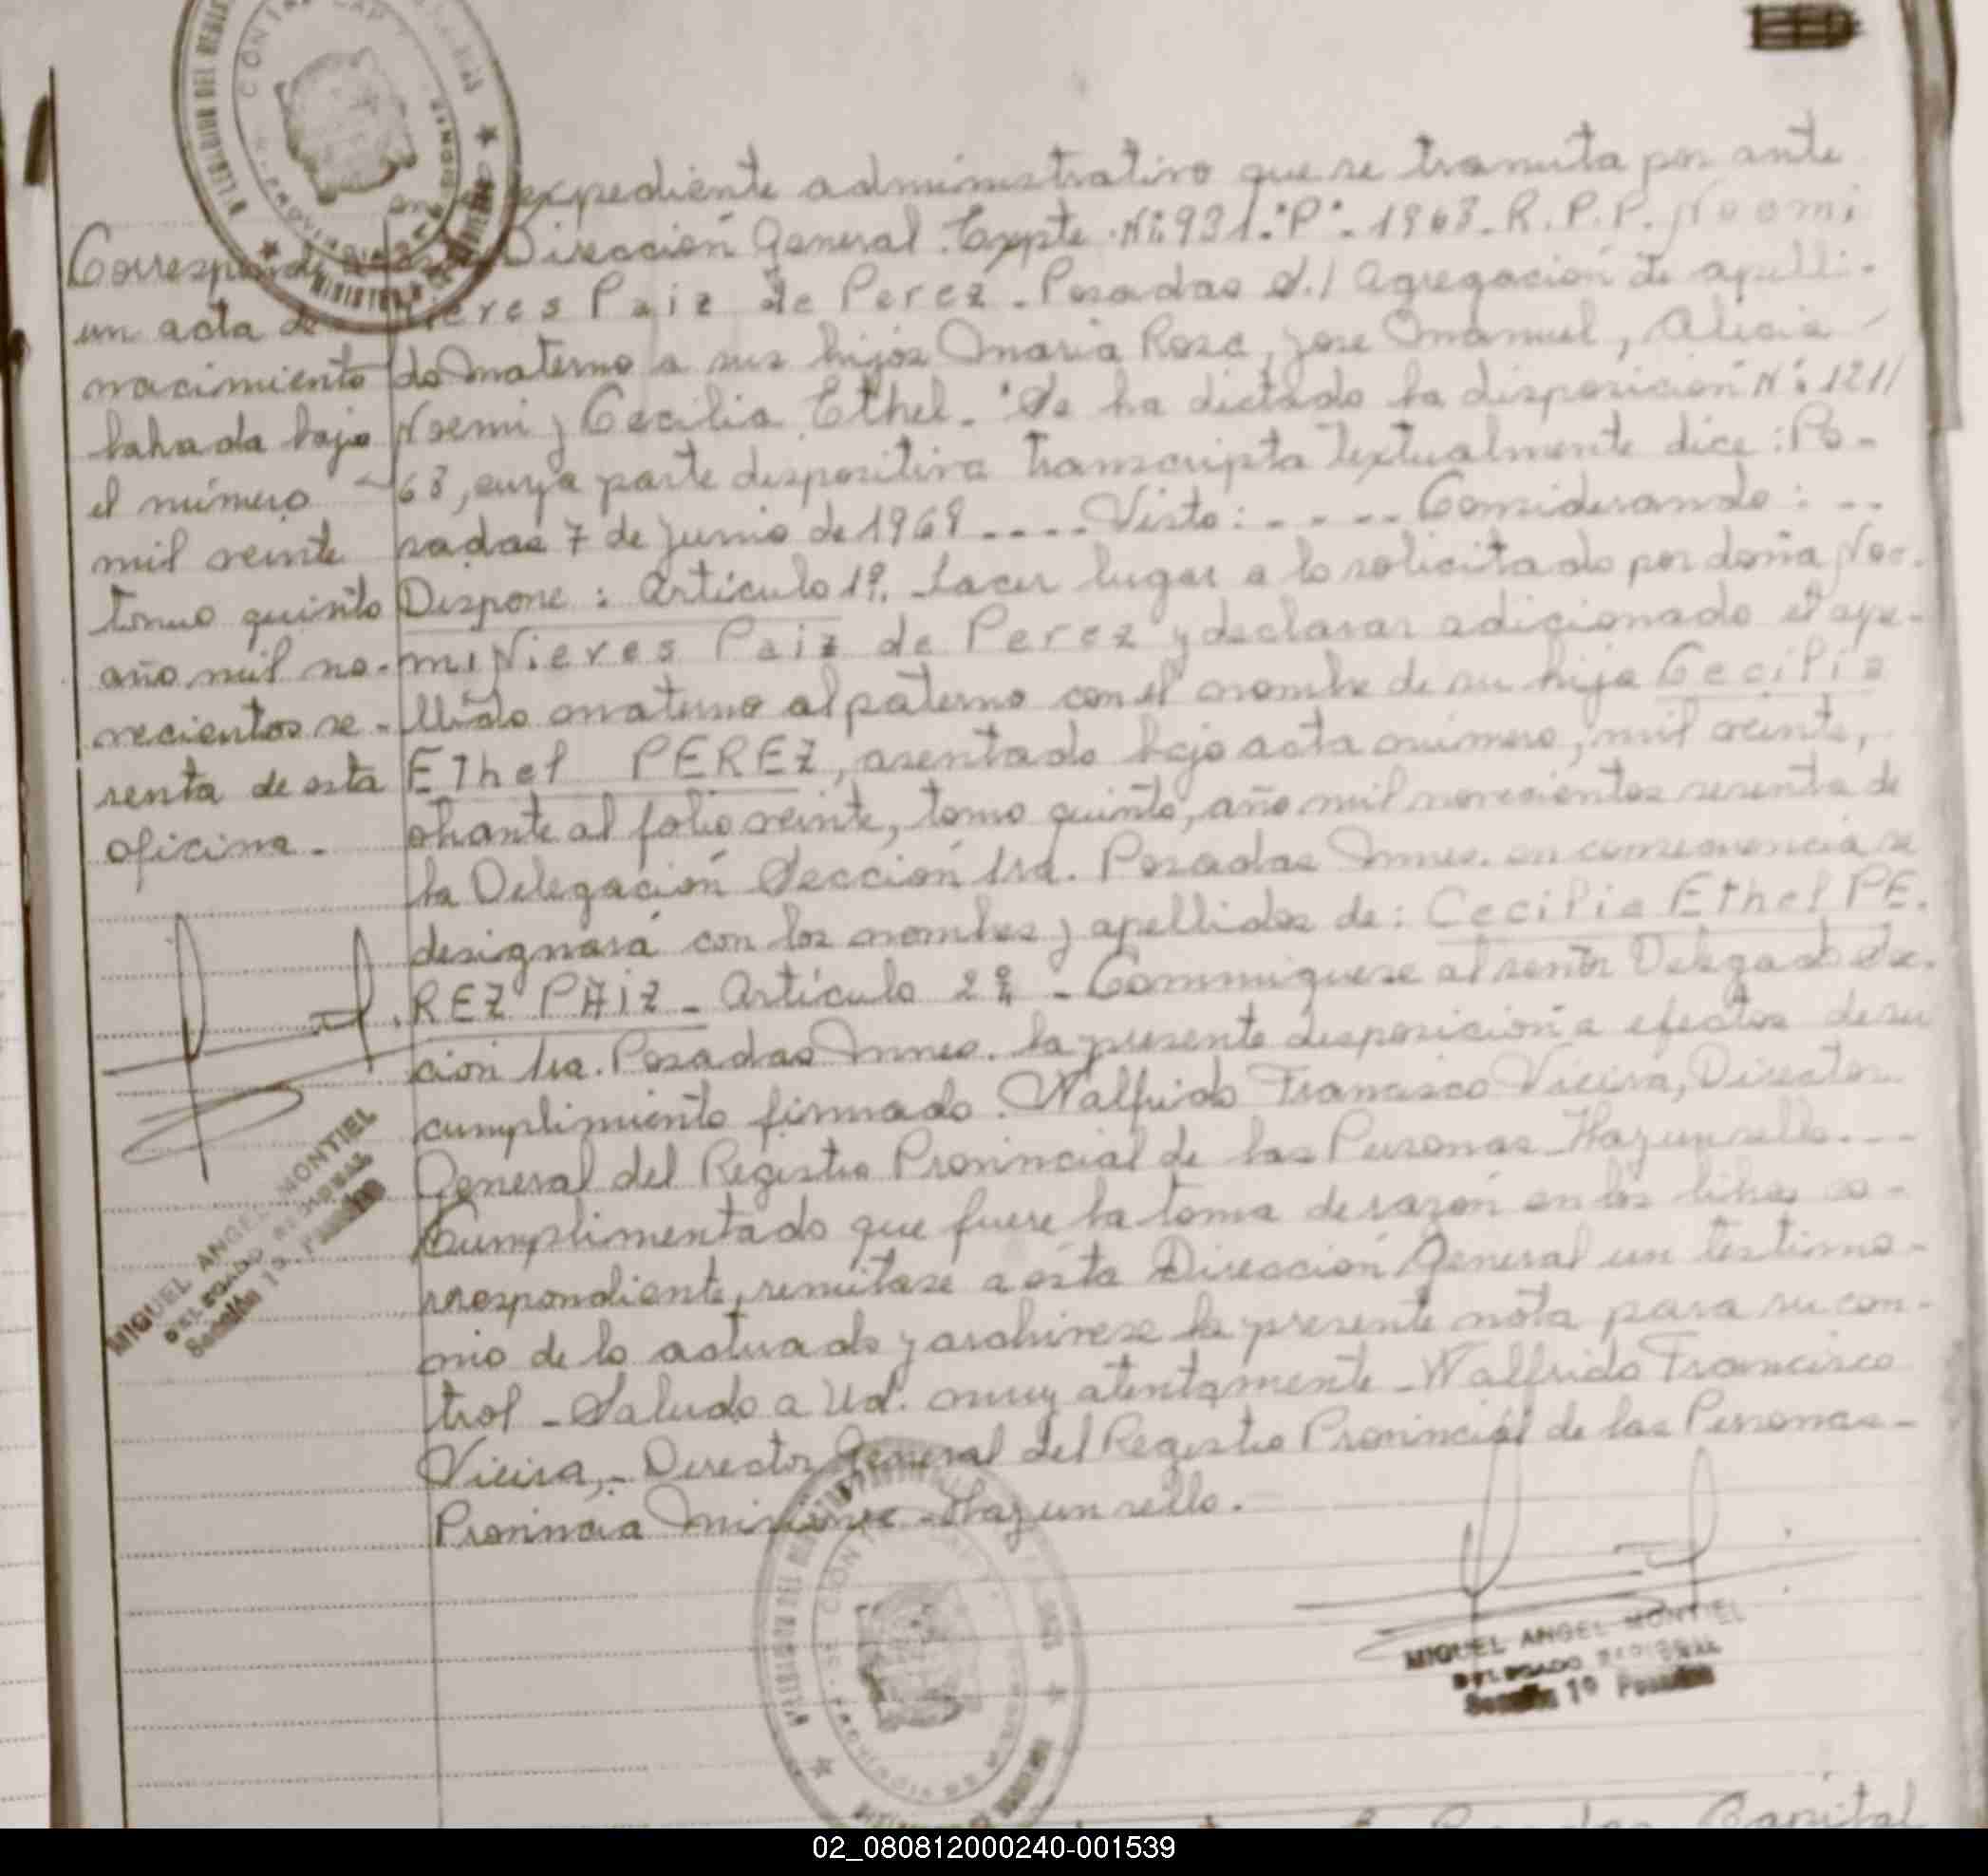 expediente administrativo que se tramita por ante
Dirección General. Expte. Nº: 931."P". 1968. R.P.P. Noemi
Nieves Paiz de Perez. Posadas S./ Agregación de apelli-
do materno a sus hijos Maria Rosa, Jose Manuel, Alicia
Noemi y Cecilia Ethel. Se ha dictado la disposición Nº: 121/
68, cuya parte dispositiva transcripta textualmente dice: Po-
sadas 7 de Junio de 1968 .... Visto: - - - - Considerando: --
Dispone: Artículo 1º. Hacer lugar a lo solicitado por doña Noe-
mi Nieves Paiz de Perez y declarar adicionado el ape-
llido materno al paterno con el nombre de su hija Cecilia
Ethel PEREZ, asentado bajo acta número, mil veinte,
obrante al folio veinte, tomo quinto, año mil novecientos sesenta de
la Delegación Sección 1ra. Posadas Mnes. en consecuencia se
designará con los nombres y apellidos de: Cecilia Ethel PE-
REZ PAIZ - Artículo 2º - Comuniquese al señor Delegado Sec-
ción 1ra. Posadas Mnes. la presente disposición a efectos de su
cumplimiento firmado. Walfrido Francisco Vieira, Director
General del Registro Provincial de las Personas. Hay un sello. ---
Cumplimentado que fuere la toma de razón en los libros co-
rrespondiente, remítase a esta Dirección General un testimo-
nio de lo actuado y archivese la presente nota para su con-
trol - Saludo a Ud. muy atentamente - Walfrido Francisco
Vieira, - Director General del Registro Provincial de las Personas -
Provincia Misiones - Hay un sello.
Corresponde
un acta de
nacimiento
labrada bajo
el número
mil veinte
tomo quinto
año mil no-
vecientos se-
senta de esta
oficina.
MIGUEL ANGEL MONTIEL
DELEGADO REGIONAL
Sección 1º Posadas
MIGUEL ANGEL MONTIEL
DELEGADO REGIONAL
Sección 1º Posadas
Capital
02_080812000240-001539